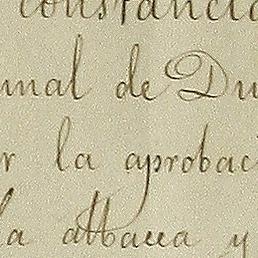 constancia
unal de Du
r la aprobaci
la albacea y